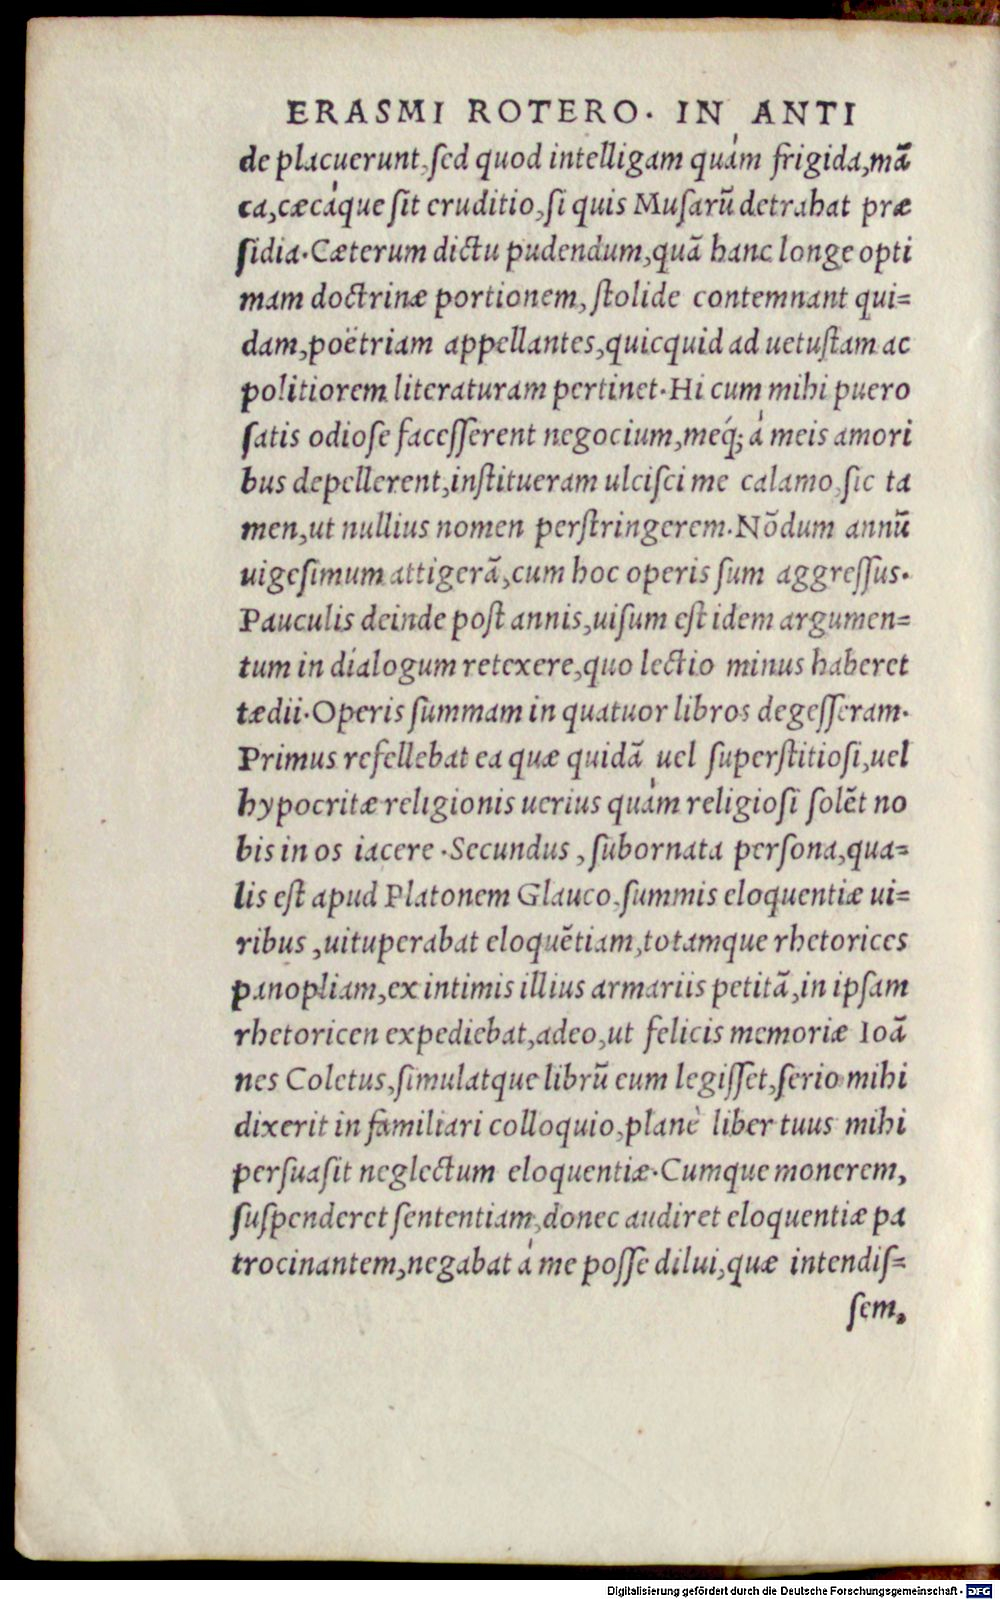 ERASMI ROTERO. IN ANTI
de placuerunt, sed quod intelligam quàm frigida, mã
ca, cæcáque sit eruditio, si quis Musarũ detrahat præ
sidia. Cæterum dictu pudendum, quã hanc longe opti
mam doctrinæ portionem, stolide contemnant qui=
dam, poëtriam appellantes, quicquid ad uetustam ac
politiorem literaturam pertinet. Hi cum mihi puero
satis odiose facesserent negocium, meq́; à meis amori
bus depellerent, institueram ulcisci me calamo, sic ta
men, ut nullius nomen perstringerem. Nõdum annũ
uigesimum attigerã, cum hoc operis sum aggressus.
Pauculis deinde post annis, uisum est idem argumen=
tum in dialogum retexere, quo lectio minus haberet
tædii. Operis summam in quatuor libros degesseram.
Primus refellebat ea quæ quidã uel superstitiosi, uel
hypocritæ religionis uerius quàm religiosi solẽt no
bis in os iacere. Secundus, subornata persona, qua=
lis est apud Platonem Glauco, summis eloquentiæ ui=
ribus, uituperabat eloquẽtiam, totamque rhetorices
panopliam, ex intimis illius armariis petitã, in ipsam
rhetoricen expediebat, adeo, ut felicis memoriæ Ioã
nes Coletus, simulatque librũ eum legisset, serio mihi
dixerit in familiari colloquio, planè liber tuus mihi
persuasit neglectum eloquentiæ. Cumque monerem,
suspenderet sententiam, donec audiret eloquentiæ pa
trocinantem, negabat à me posse dilui, quæ intendis=
sem,
Digitalisierung gefördert durch die Deutsche Forschungsgemeinschaft - DFG